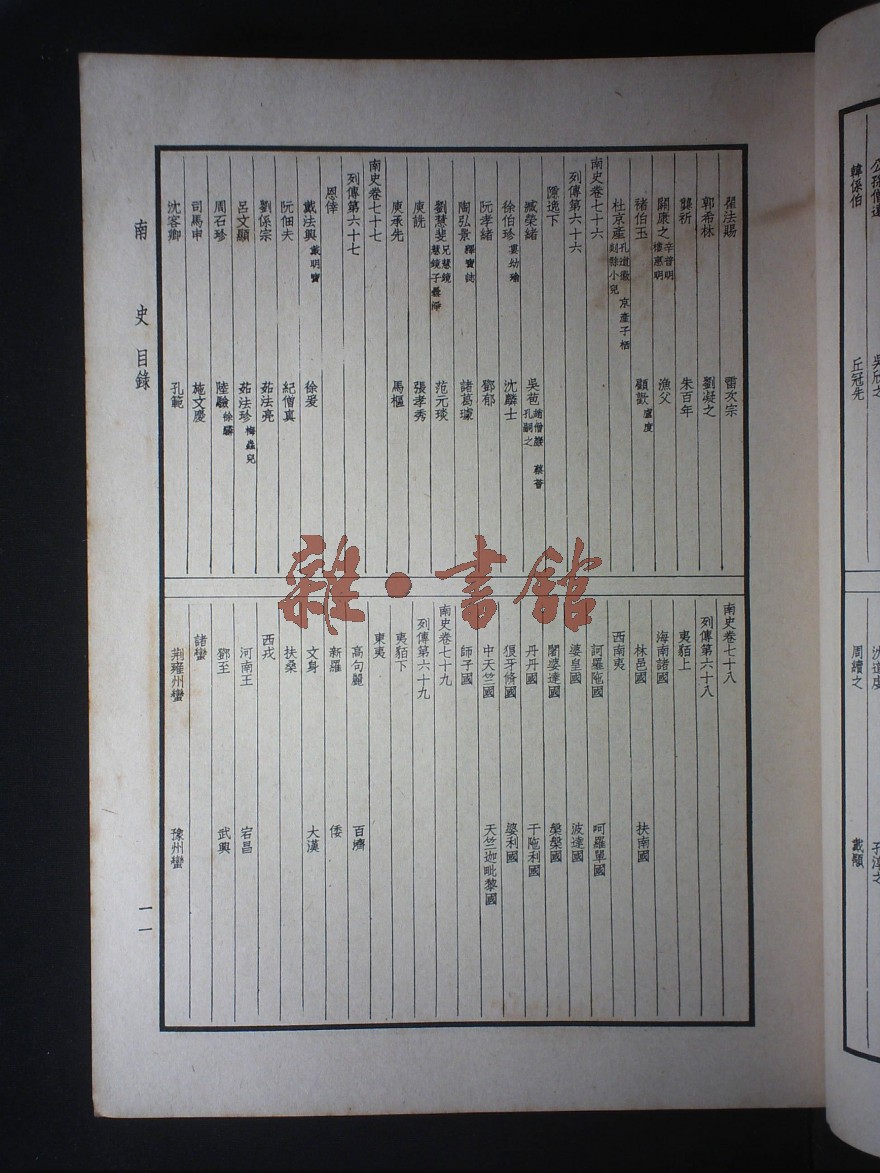 翟法賜 雷次宗
郭希林 劉凝之
龔祈 朱百年
關康之 辛普明 樓惠明 漁父
褚伯玉 顧歡 盧度
杜京產 孔道徽 京產子栖 剡縣小兒
南史卷七十六
列傳第六十六
隱逸下
臧榮緒 吳苞 趙僧巖 蔡薈 孔嗣之
徐伯珍 婁幼瑜 沈麟士
阮孝緒 鄧郁
陶弘景 釋寶誌 諸葛璩
劉慧斐 兄慧鏡 慧鏡子曇淨 范元琰
庾詵 張孝秀
庾承先 馬樞
南史卷七十七
列傳第六十七
恩倖
戴法興 戴明寶 徐爰
阮佃夫 紀僧真
劉係宗 茹法亮
呂文顯 茹法珍 梅蟲兒
周石珍 陸驗 徐驎
司馬申 施文慶
沈客卿 孔範
南史卷七十八
列傳第六十八
夷貊上
海南諸國
林邑國 扶南國
西南夷
訶羅陁國 呵羅單國
婆皇國 波達國
闍婆達國 槃槃國
丹丹國 干陁利國
狼牙脩國 婆利國
中天竺國 天竺迦毗黎國
師子國
南史卷七十九
列傳第六十九
夷貊下
東夷
高句麗 百濟
新羅 倭
文身 大漢
扶桑
西戎
河南王 宕昌
鄧至 武興
諸蠻
荆雍州蠻 豫州蠻
南史 目錄
一一
韓係伯 丘冠先
周續之 戴顒
雜·書館